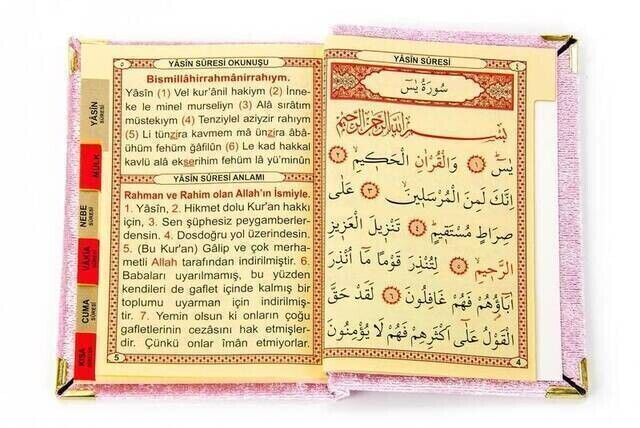 YÂSİN SÛRESİ
٤
سُورَةُ يٰسٓ
بِسْمِ اللّٰهِ الرَّحْمٰنِ الرَّحٖيمِ
يٰسٓ ﴿١﴾ وَالْقُرْاٰنِ الْحَكٖيمِ ﴿٢﴾
اِنَّكَ لَمِنَ الْمُرْسَلٖينَ ﴿٣﴾ عَلٰى
صِرَاطٍ مُسْتَقٖيمٍ ﴿٤﴾ تَنْزٖيلَ الْعَزٖيزِ
الرَّحٖيمِ ﴿٥﴾ لِتُنْذِرَ قَوْمًا مَٓا اُنْذِرَ
اٰبَٓاؤُ۬هُمْ فَهُمْ غَافِلُونَ ﴿٦﴾ لَقَدْ حَقَّ
الْقَوْلُ عَلٰٓى اَكْثَرِهِمْ فَهُمْ لَا يُؤْمِنُونَ
4
٥
YÂSİN SÛRESİ OKUNUŞU
Bismillâhirrahmânirrahıym.
Yâsîn (1) Vel kur'ânil hakiym (2) İnne-
ke le minel murseliyn (3) Alâ sırâtım
müstekıym (4) Tenziylel aziyzir rahıym
(5) Li tünzira kavmem mâ ünzira âbâ-
ühüm fehüm gâfilûn (6) Le kad hakkal
kavlü alâ ekserihim fehüm lâ yü'minûn
YÂSİN SÛRESİ ANLAMI
Rahman ve Rahim olan Allah'ın İsmiyle.
1. Yâsîn, 2. Hikmet dolu Kur'an hakkı
için, 3. Sen şüphesiz peygamberler-
densin. 4. Dosdoğru yol üzerindesin.
5. (Bu Kur'an) Gâlip ve çok merha-
metli Allah tarafından indirilmiştir. 6.
Babaları uyarılmamış, bu yüzden
kendileri de gaflet içinde kalmış bir
toplumu uyarman için indirilmiş-
tir. 7. Yemin olsun ki onların çoğu
gafletlerinin cezâsını hak etmişler-
dir. Çünkü onlar îmân etmiyorlar.
5
YÂSİN
SÛRESİ
MÜLK
NEBE
SÛRESİ
VÂKIA
SÛRESİ
CUMA
SÛRESİ
KISA